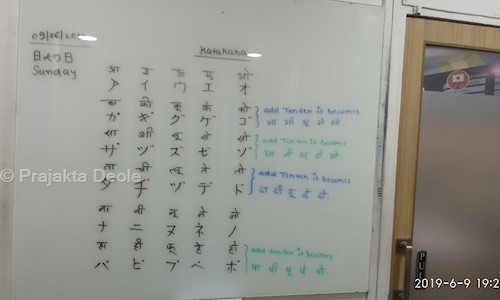 09/06/20
Katakana
日よう日
Sunday
आ इ ऊ ए ओ
ア イ ウ エ オ
का की कू के को
ガ ギ グ ゲ ゴ
add Tenten it becomes
गा गी गू गे गो.
सा शी सू से सो
ザ ヅ ズ ゼ ゾ
add Tenten it becomes
ता ची
ダ ヂ ヅ デ ド
add Tenten it becomes
दा
ना नी नू ने नो
ナ ニ ヌ ネ ノ
हा ही फू हे हो
バ ビ ブ ベ ボ
add tenten it becomes
© Prajakta Deole
PULL
2019-6-9 19:2